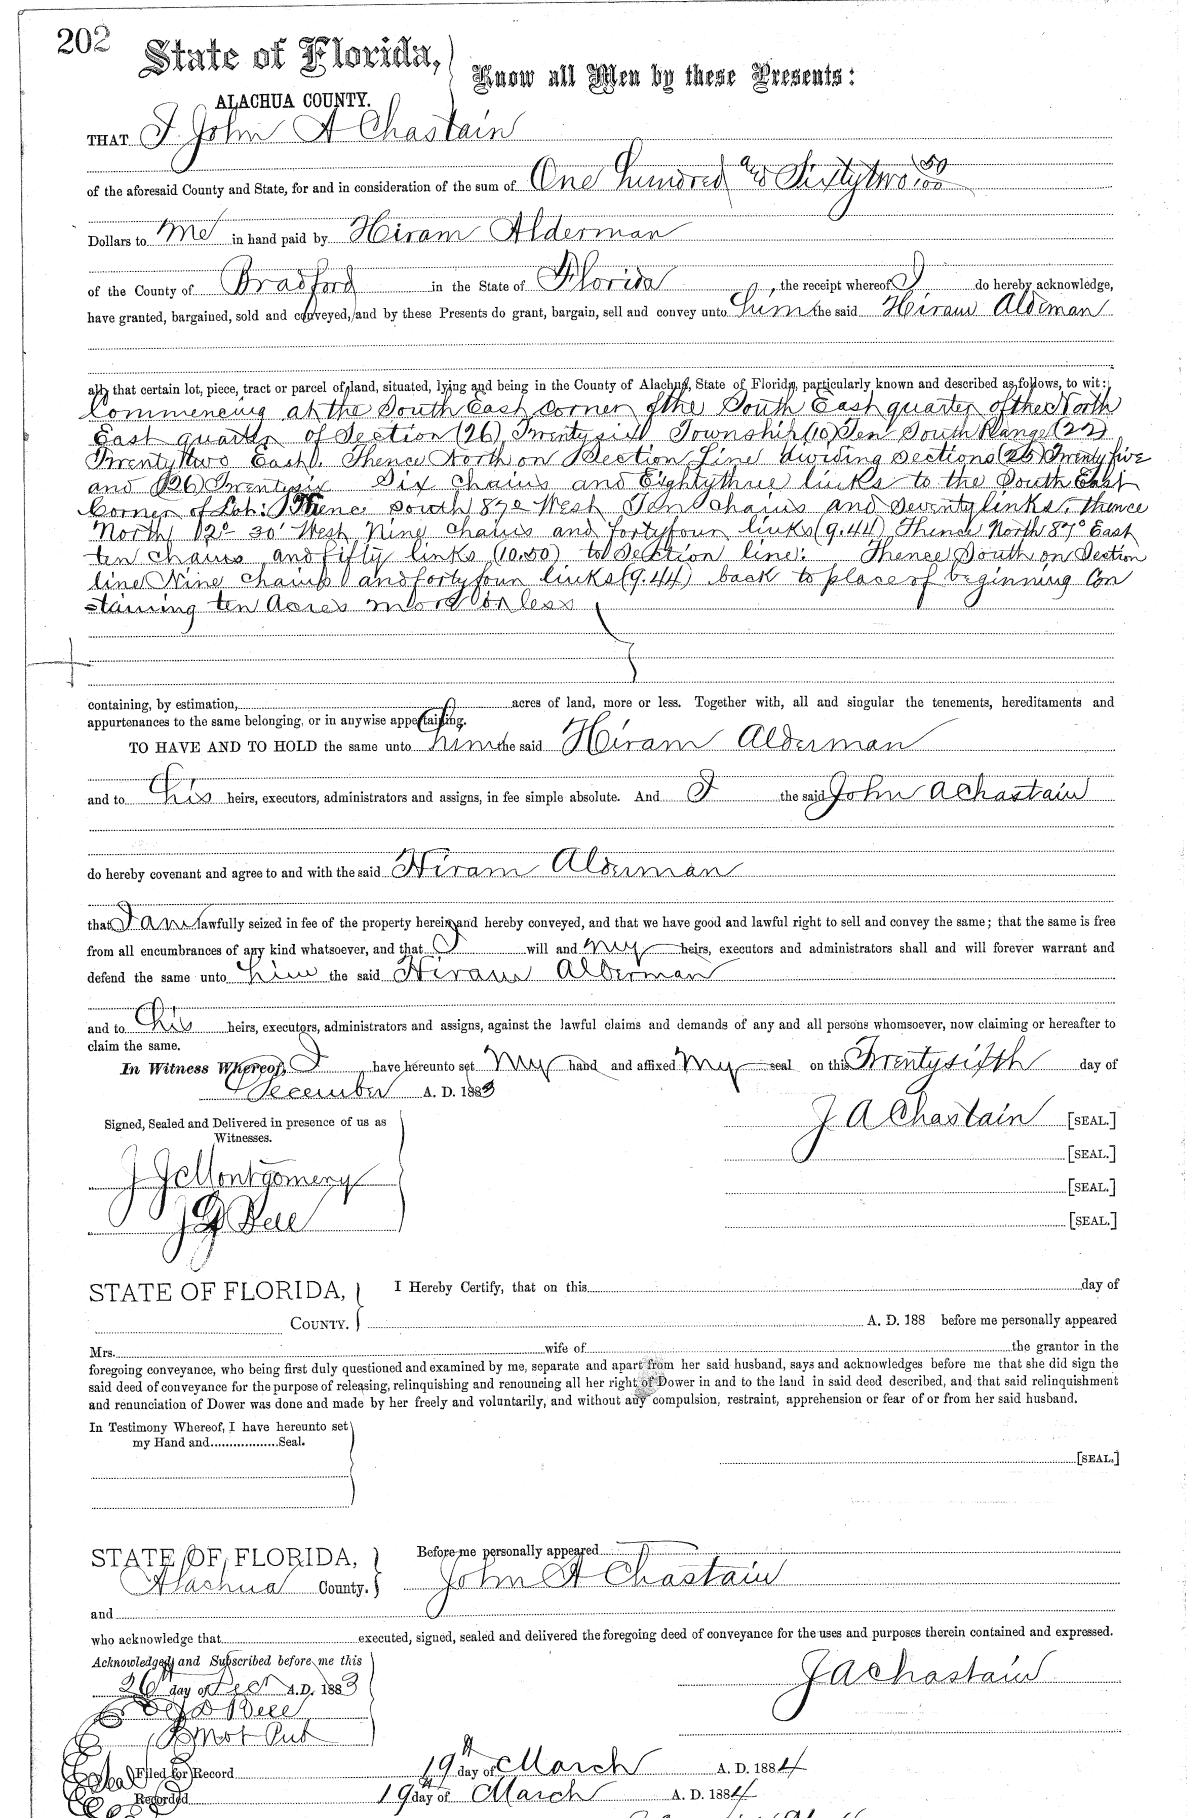 202
State of Florida,
Know all Men by these Presents:
ALACHUA COUNTY.
THAT I John A Chastain
of the aforesaid County and State, for and in consideration of the sum of One hundred and Sixtytwo 50/100
Dollars to me in hand paid by Hiram Alderman
of the County of Bradford in the State of Florida, the receipt whereof I do hereby acknowledge,
have granted, bargained, sold and conveyed, and by these Presents do grant, bargain, sell and convey unto him the said Hiram Alderman
all that certain lot, piece, tract or parcel of land, situated, lying and being in the County of Alachua, State of Florida, particularly known and described as follows, to wit:
Commencing at the South East corner of the South East quarter of the North
East quarter of Section (26) Twentysix Township (10) Ten South Range (22)
Twentytwo East. Thence North on Section Line dividing sections (25) Twentyfive
and (26) Twentysix Six chains and Eightythree links to the South East
Corner of Lot: Thence South 87° West Ten chains and Seventy links. thence
North 12° 30' West Nine chains and fortyfour links (9.44) Thence North 87° East
ten chains and fifty links (10.50) to Section line: Thence South on Section
line Nine chains and fortyfour links (9.44) back to place of beginning Con
taining ten Acres more or less
containing, by estimation, acres of land, more or less. Together with, all and singular the tenements, hereditaments and
appurtenances to the same belonging, or in anywise appertaining.
TO HAVE AND TO HOLD the same unto him the said Hiram Alderman
and to his heirs, executors, administrators and assigns, in fee simple absolute. And I the said John A Chastain
do hereby covenant and agree to and with the said Hiram Alderman
that I am lawfully seized in fee of the property herein and hereby conveyed, and that we have good and lawful right to sell and convey the same; that the same is free
from all encumbrances of any kind whatsoever, and that I will and my heirs, executors and administrators shall and will forever warrant and
defend the same unto him the said Hiram Alderman
and to his heirs, executors, administrators and assigns, against the lawful claims and demands of any and all persons whomsoever, now claiming or hereafter to
claim the same.
In Witness Whereof, I have hereunto set My hand and affixed My seal on this Twentysixth day of
December A. D. 1883
Signed, Sealed and Delivered in presence of us as
Witnesses.
J A Chastain [SEAL.]
[SEAL.]
J J Montgomery
[SEAL.]
J D Bell
[SEAL.]
STATE OF FLORIDA,
I Hereby Certify, that on this day of
COUNTY.
A. D. 188 before me personally appeared
Mrs. wife of the grantor in the
foregoing conveyance, who being first duly questioned and examined by me, separate and apart from her said husband, says and acknowledges before me that she did sign the
said deed of conveyance for the purpose of releasing, relinquishing and renouncing all her right of Dower in and to the land in said deed described, and that said relinquishment
and renunciation of Dower was done and made by her freely and voluntarily, and without any compulsion, restraint, apprehension or fear of or from her said husband.
In Testimony Whereof, I have hereunto set
my Hand and..................Seal.
[SEAL.]
STATE OF FLORIDA,
Before me personally appeared
Alachua County.
John A Chastain
and
who acknowledge that executed, signed, sealed and delivered the foregoing deed of conveyance for the uses and purposes therein contained and expressed.
Acknowledged and Subscribed before me this
J A Chastain
26th day of Decr A.D. 1883
J D Bell
Not Pub
Seal
Filed for Record 19th day of March A. D. 1884
Recorded 19th day of March A. D. 1884